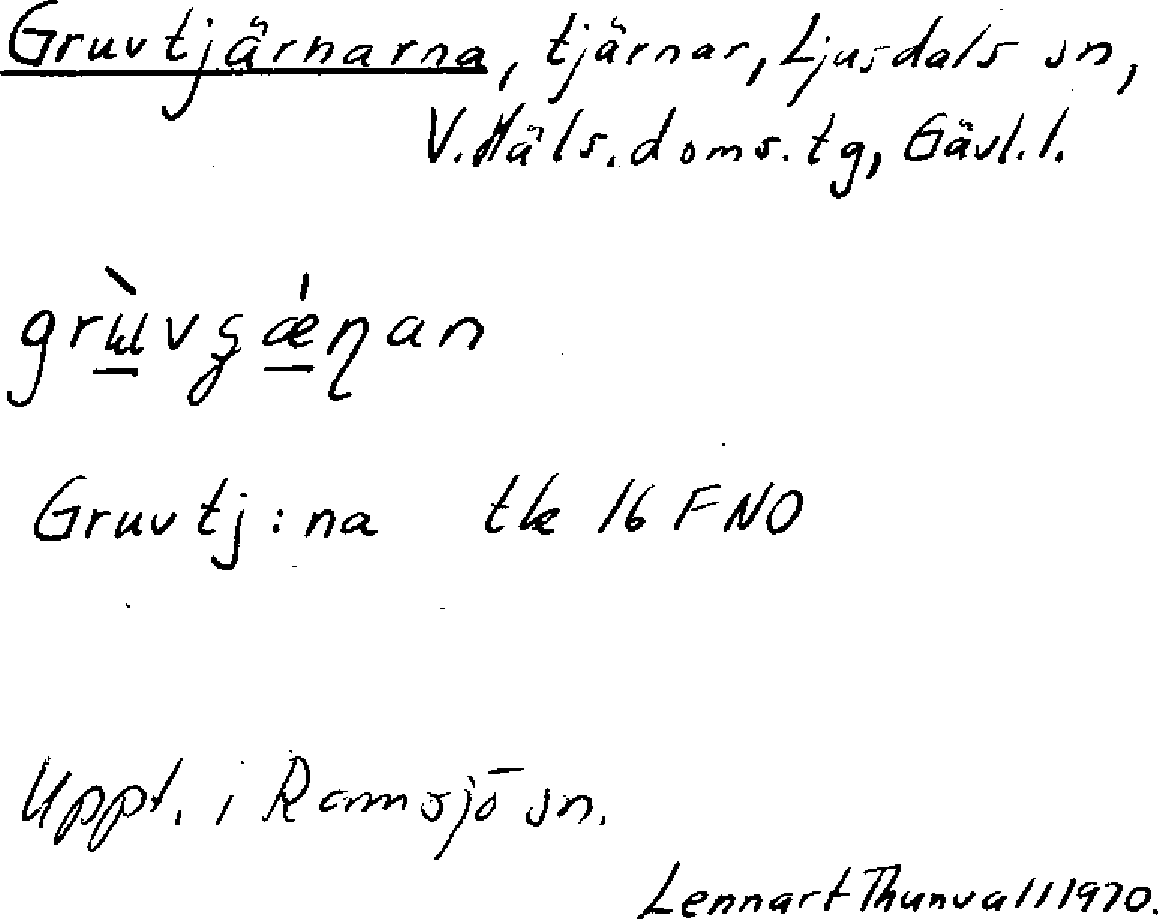 Gruvtjärnarna, tjärnar, Ljusdals sn,
V.Häls.doms.tg, Gävl.l.
Gruvtj:na tk 16 F NO
Uppt. i Ramsjö sn.
Lennart Thunvall 1970.